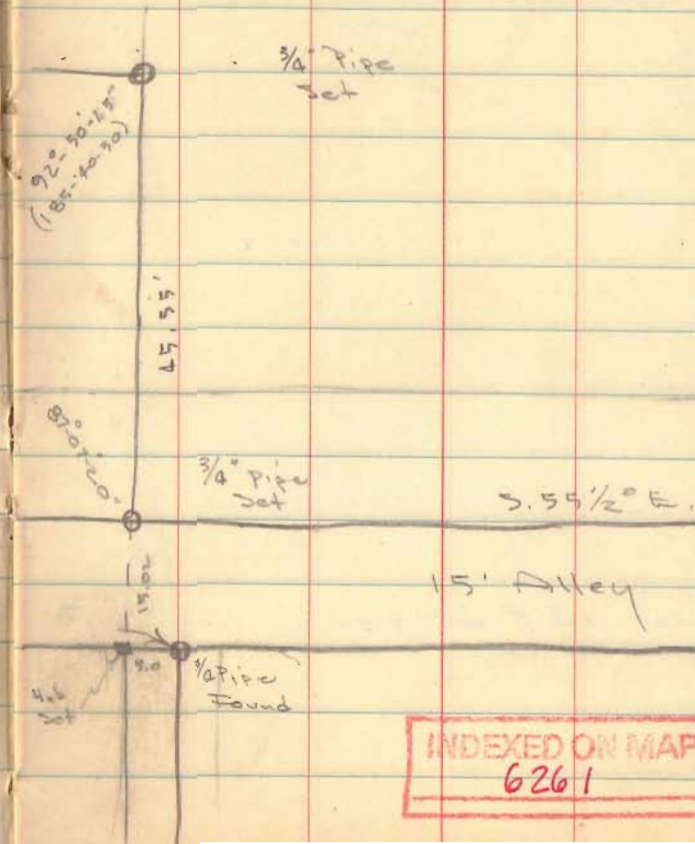 3/4" Pipe
Set
92°-50'-15"
(185-40-30)
45.55'
87°-07'-20"
3/4" Pipe
Set
S.55 1/2° E.
15.02
15' Alley
5.0
3/4 Pipe
Found
Set
INDEXED ON MAP
6261